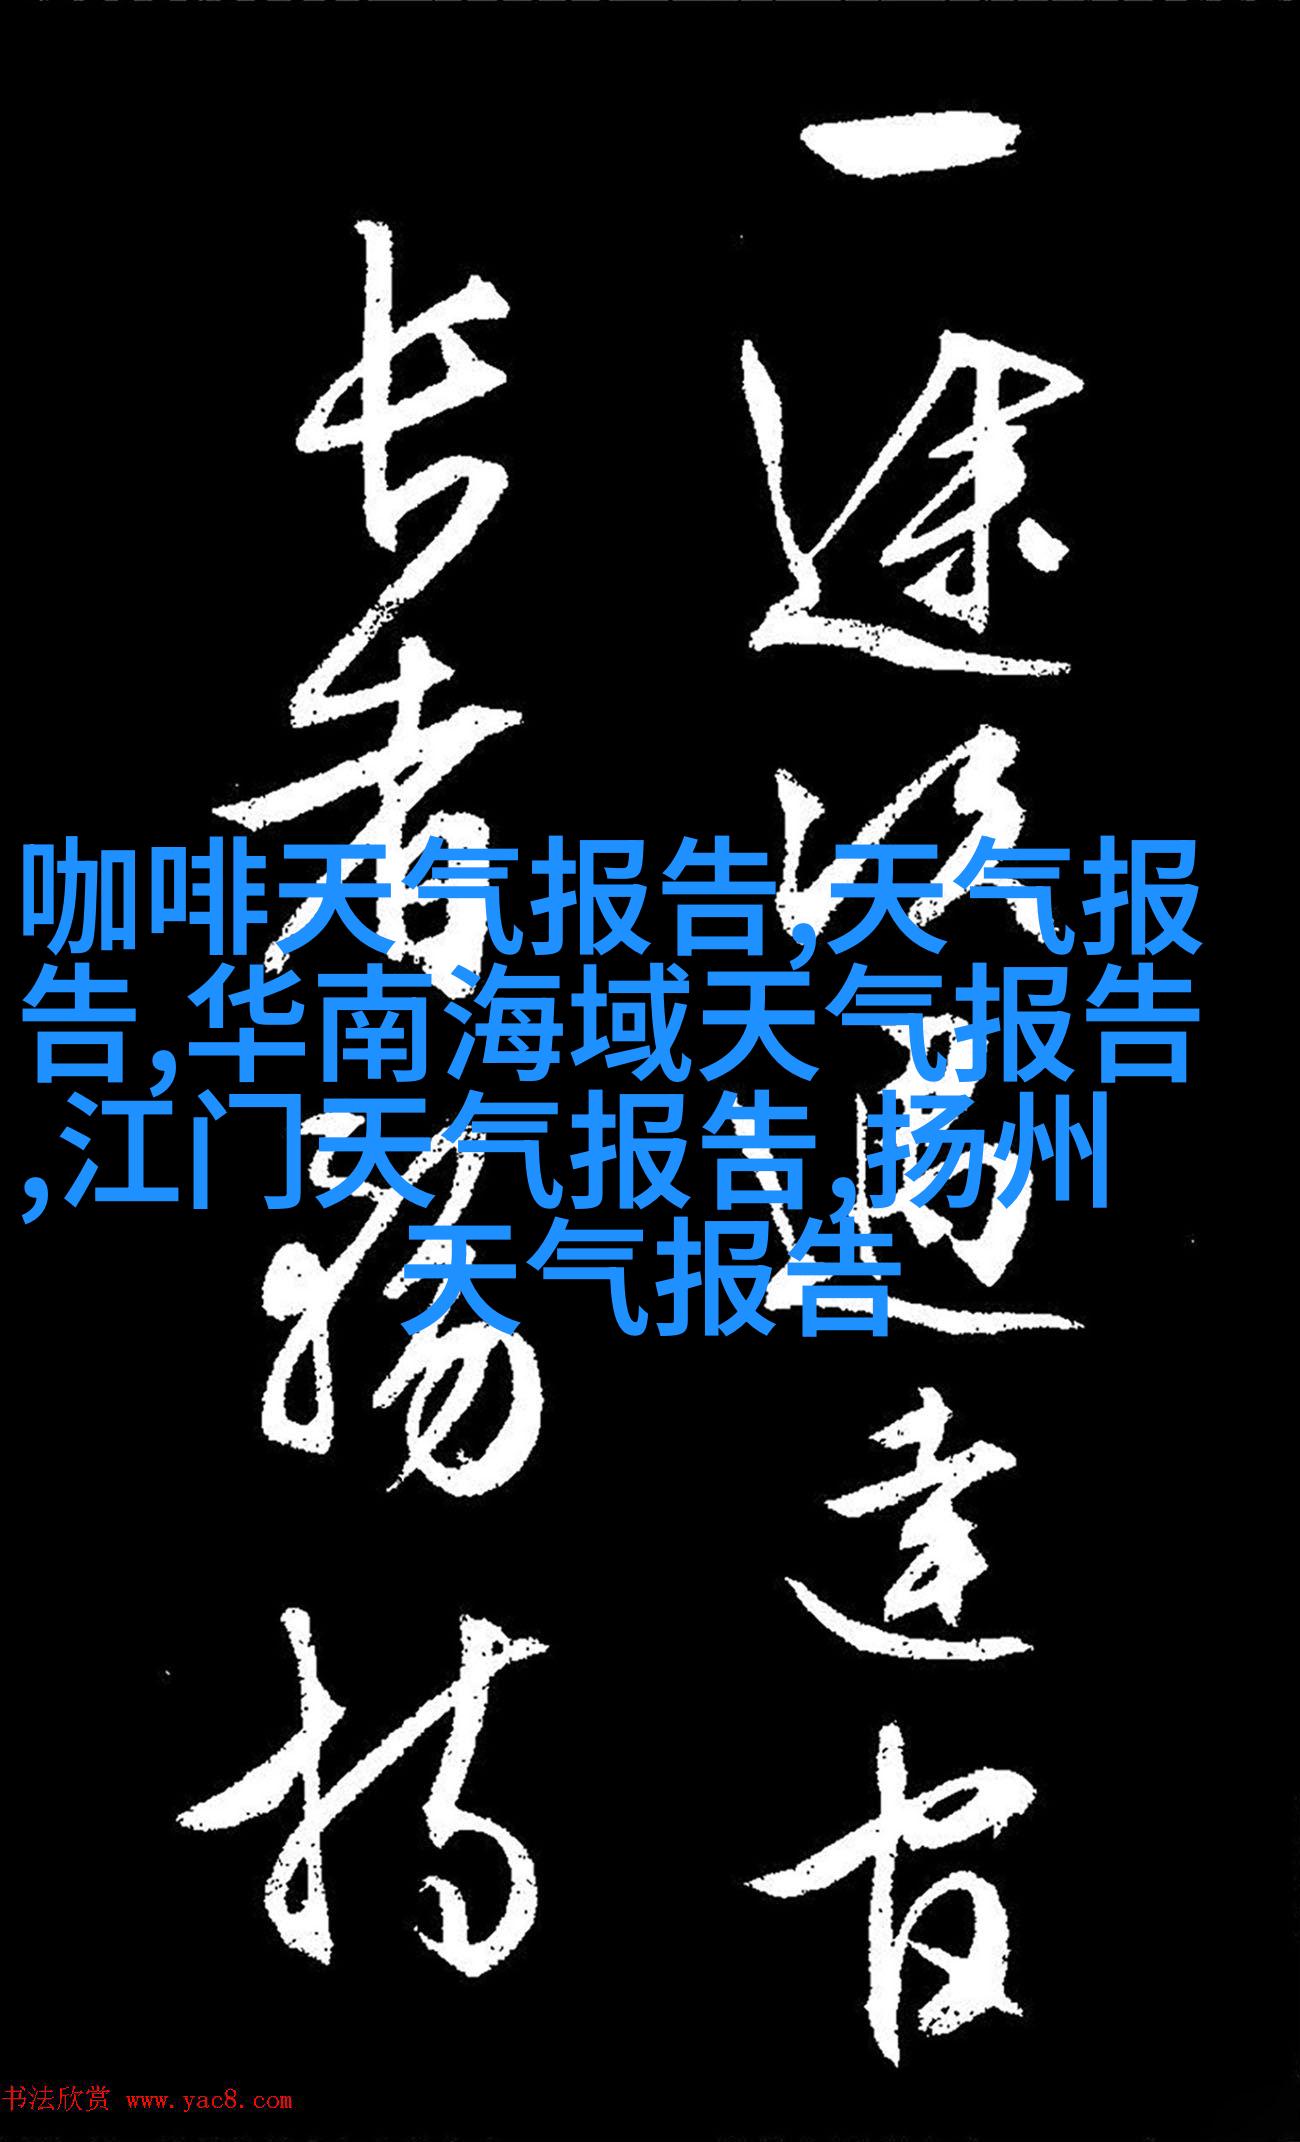 一途次遇達官
長者揚揚
咖啡天气报告,天气报
告,华南海域天气报告
,江门天气报告,扬州
天气报告
书法欣赏 www.yac8.com